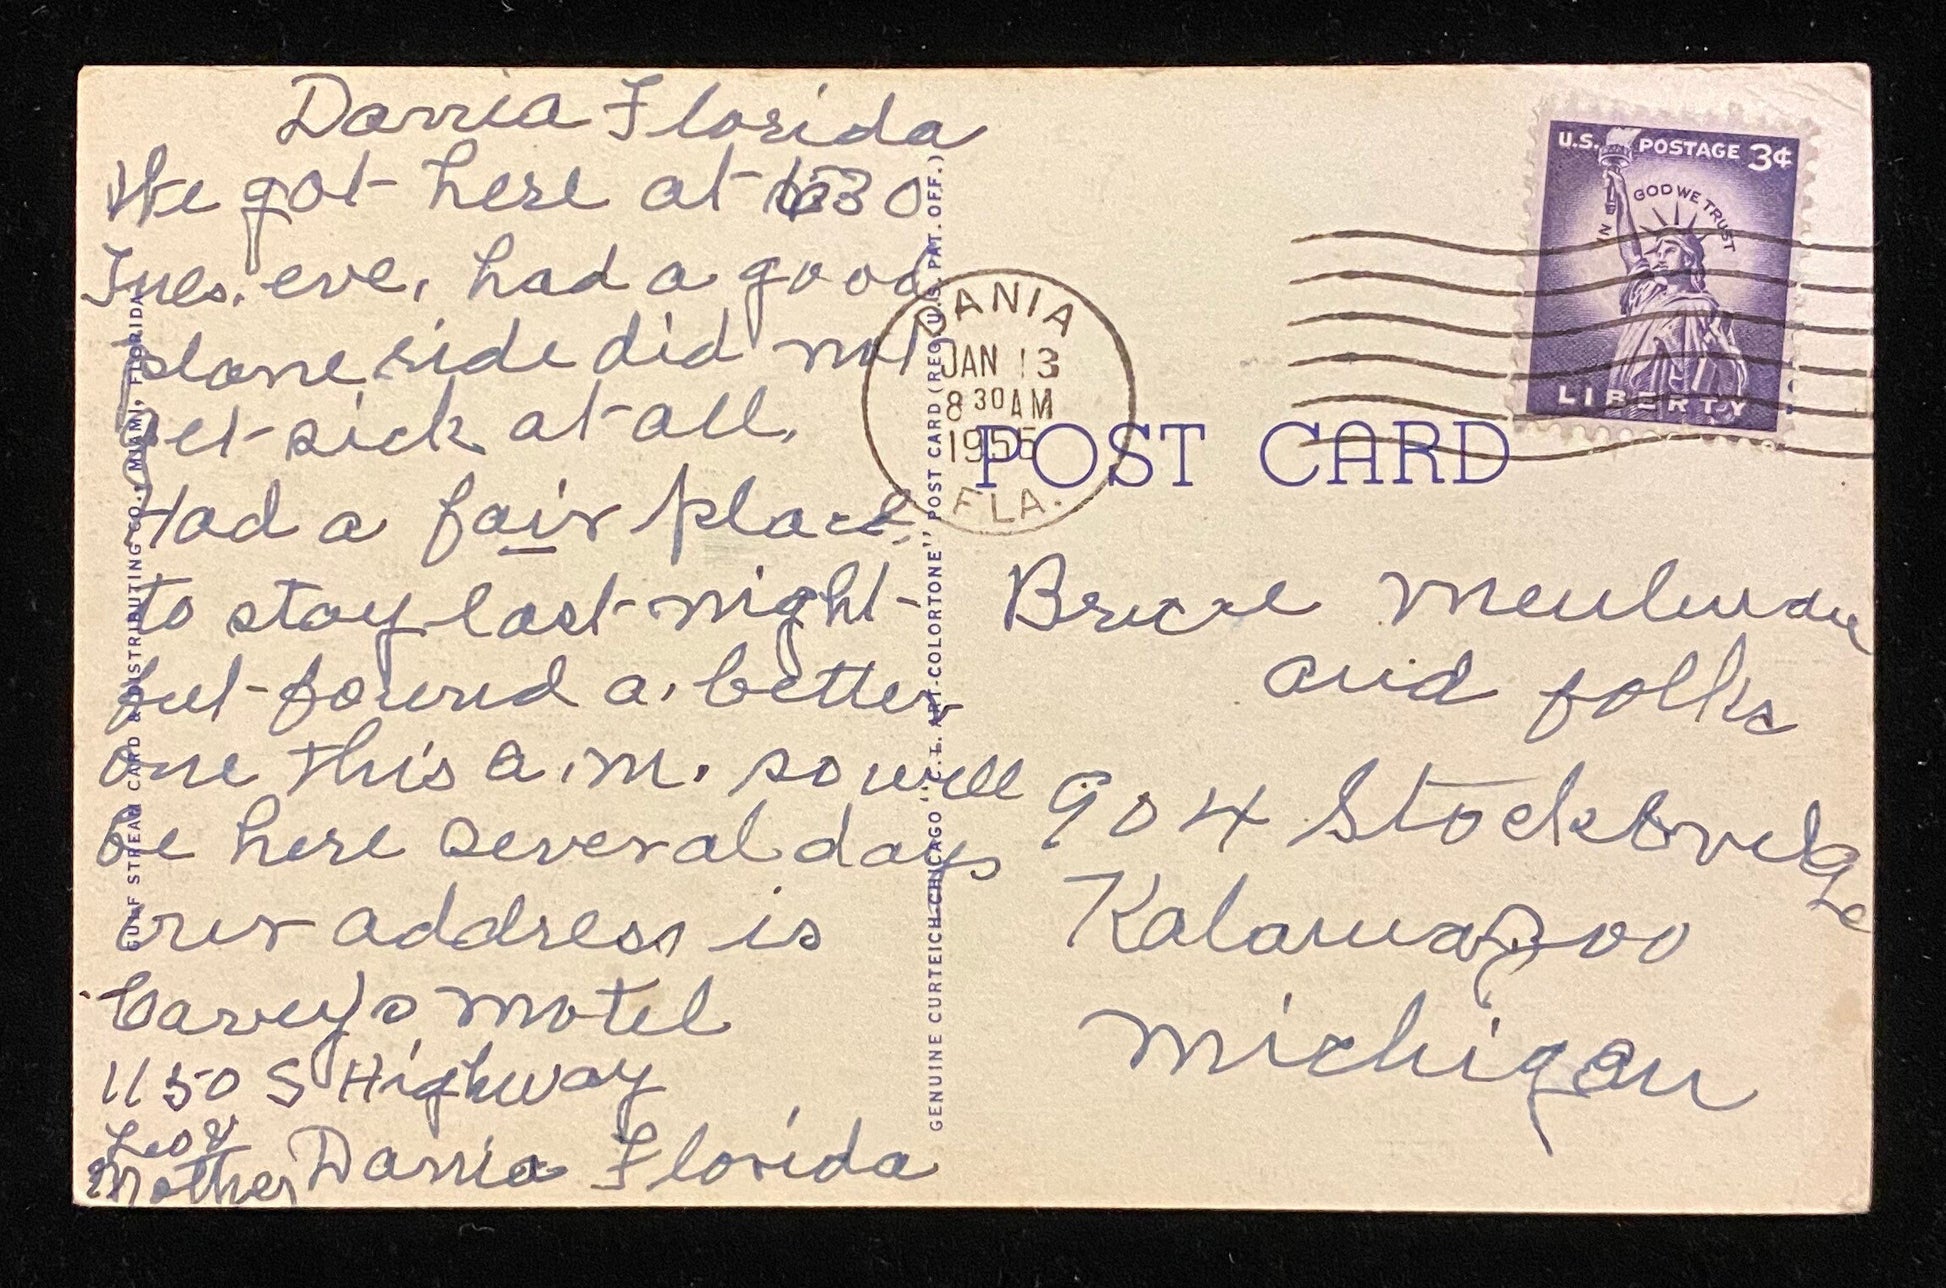 Dania Florida
We got here at 630
Tues. eve, had a good
plane ride did not
get sick at all.
Had a fair place
to stay last night
but found a better
one this a.m. so will
be here several days
our address is
Carey's Motel
1150 S Highway
Dania Florida
Leo &
Mother
GULF STREAM CARD & DISTRIBUTING CO., MIAMI, FLORIDA
GENUINE CURTEICH-CHICAGO "C.T. ART-COLORTONE" POST CARD (REG. U.S. PAT. OFF.)
DANIA
JAN 13
8 30 AM
1955
FLA.
U.S. POSTAGE 3¢
IN GOD WE TRUST
LIBERTY
POST CARD
Bruce
and folks
904 Stockbridge
Kalamazoo
Michigan